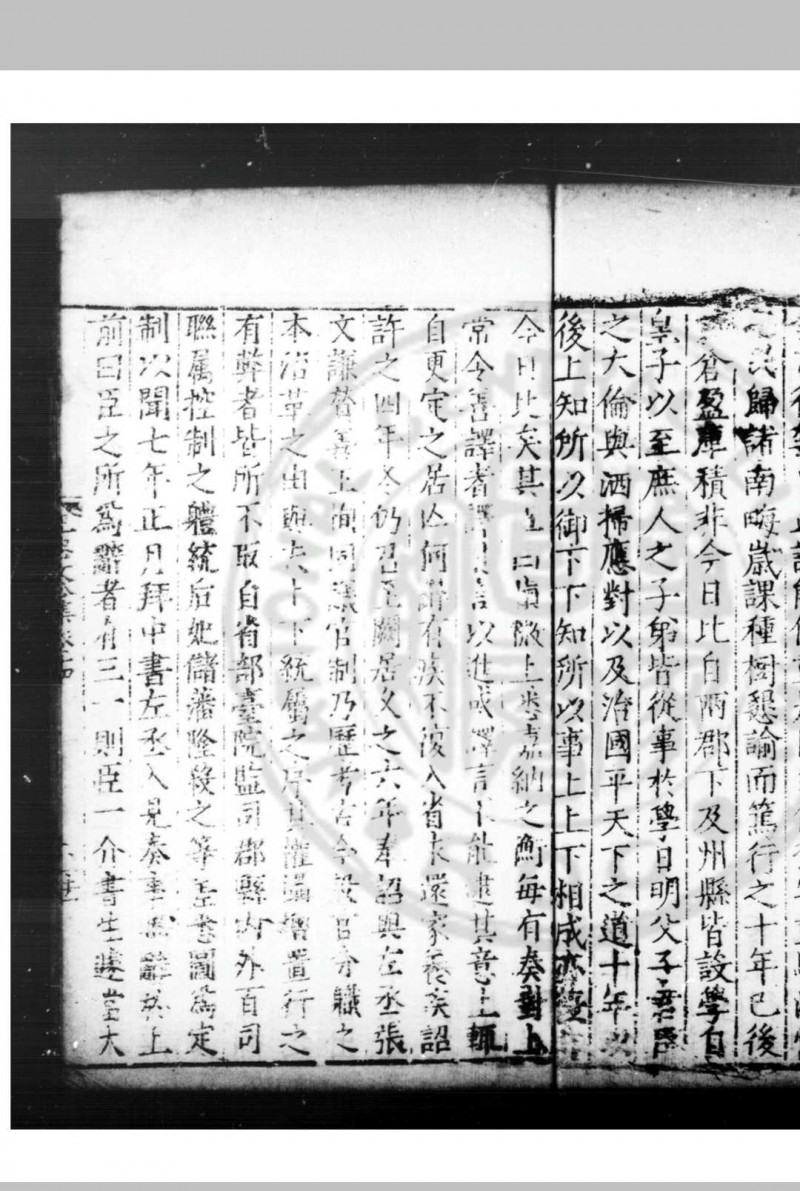 之民歸諸南畮歲課種樹懇諭而篤行之十年已後
倉盈庫積非今日比自兩郡下及州縣皆設學自
皇子以至庶人之子弟皆從事於學日明父子君臣
之大倫與洒掃應對以及治國平天下之道十年以
後上知所以御下下知所以事上上下相成亦復
今日比矣其五曰慎微上悉嘉納之衡每有奏對上
常令善譯者譯其言以進或譯言不能盡其意上輒
自更定之居亡何謂有疾不復入省求還家養疾詔
許之四年冬仍召至闕居久之六年奉詔與左丞張
文謙贊善王恂同議官制乃歷考古今設官分職之
本沿革之由與夫上下統屬之序其權攝增置行之
有弊者皆所不取自省部臺院監司郡縣內外百司
聯屬控制之體統后妃儲藩隆殺之等至悉圖為定
制以聞七年正月拜中書左丞入見奏事畢辭於上
前曰臣之所為辭者有三一則臣一介書生遽當大